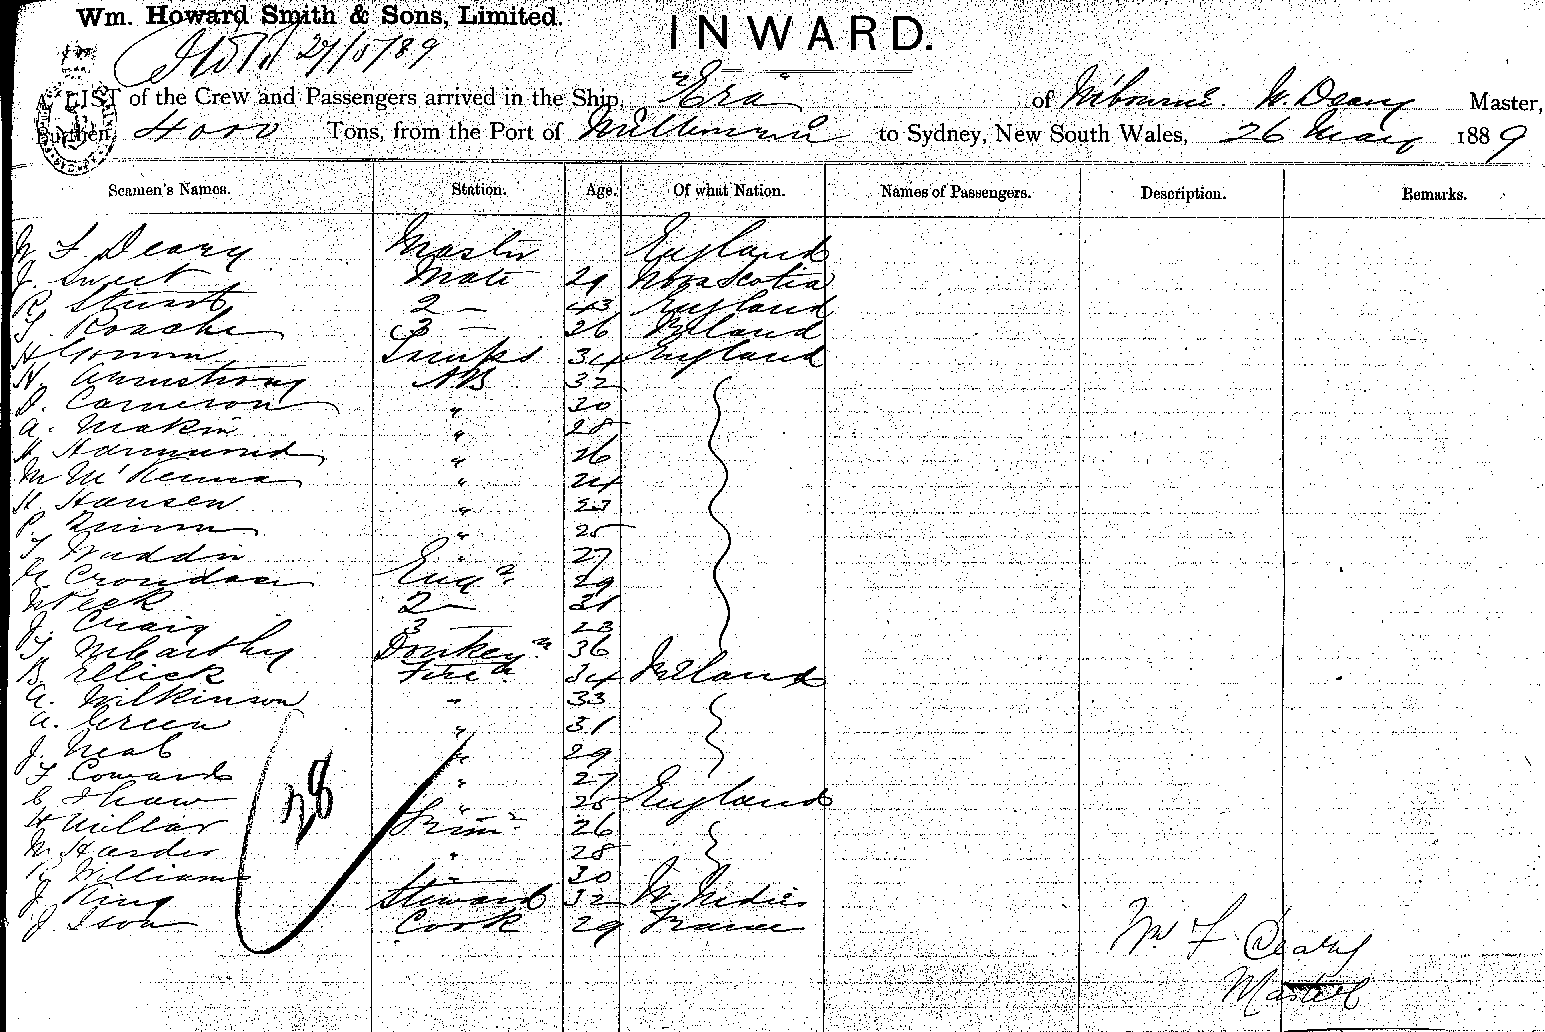 Wm. Howard Smith & Sons, Limited.
INWARD.
27/5/89
LIST of the Crew and Passengers arrived in the Ship, "Era" of Melbourne W. Deary Master,
Burthen, 4000 Tons, from the Port of Melbourne to Sydney, New South Wales, 26 May 1889
Seamen's Names. Station. Age. Of what Nation. Names of Passengers. Description. Remarks.
W F Deary Master England
J. Sweet Mate 29 Nova Scotia
R Stuart 2 — 43 England
T. Roache 3 — 26 Ireland
H Gomm Lamps 34 England
N. Armstrong AB 32
D. Cameron " 30
A. Makin " 28
H Hammond " 26
M McKenna " 24
H Hansen " 23
P. Quinn " 25
T. Waddn " 27
Crondace Engr. 29
W Peck 2 — 31
J. Craig 3 — 23
T. McCarthy Donkeyn. 36
B. Ellick Firen 34 Ireland
A. Wilkinson " 33
A. Green " 31
J. Neal " 29
T Cowards " 27
C. Shaw " 25 England
H Millar Trimr. 26
M Harder " 28
R Williams " 30
J. King Steward 32 W Indies
J Ison Cook 29 France
28
W. F. Deary
Master